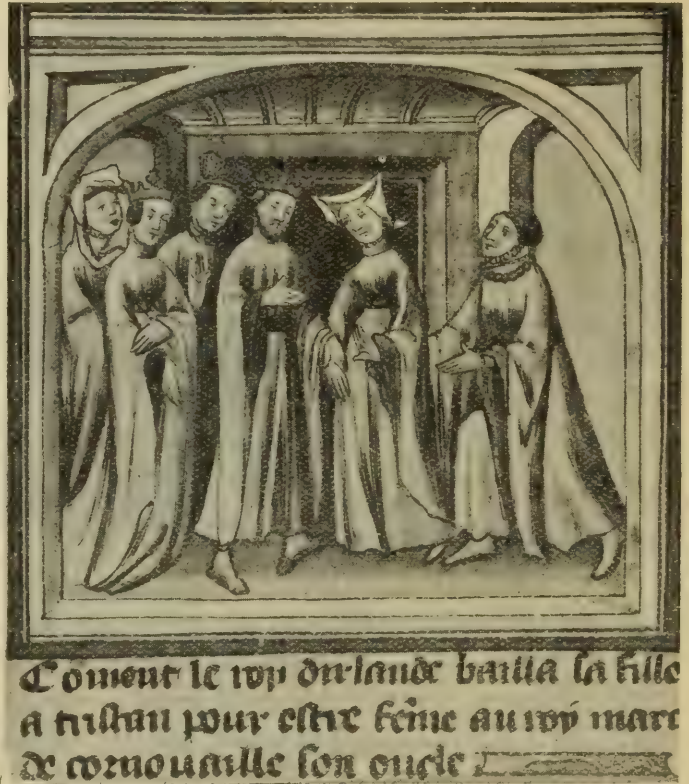 Cōment le roy dirlande bailla sa fille
a tristan pour estre fēme au roy marc
de cornouaille son oncle